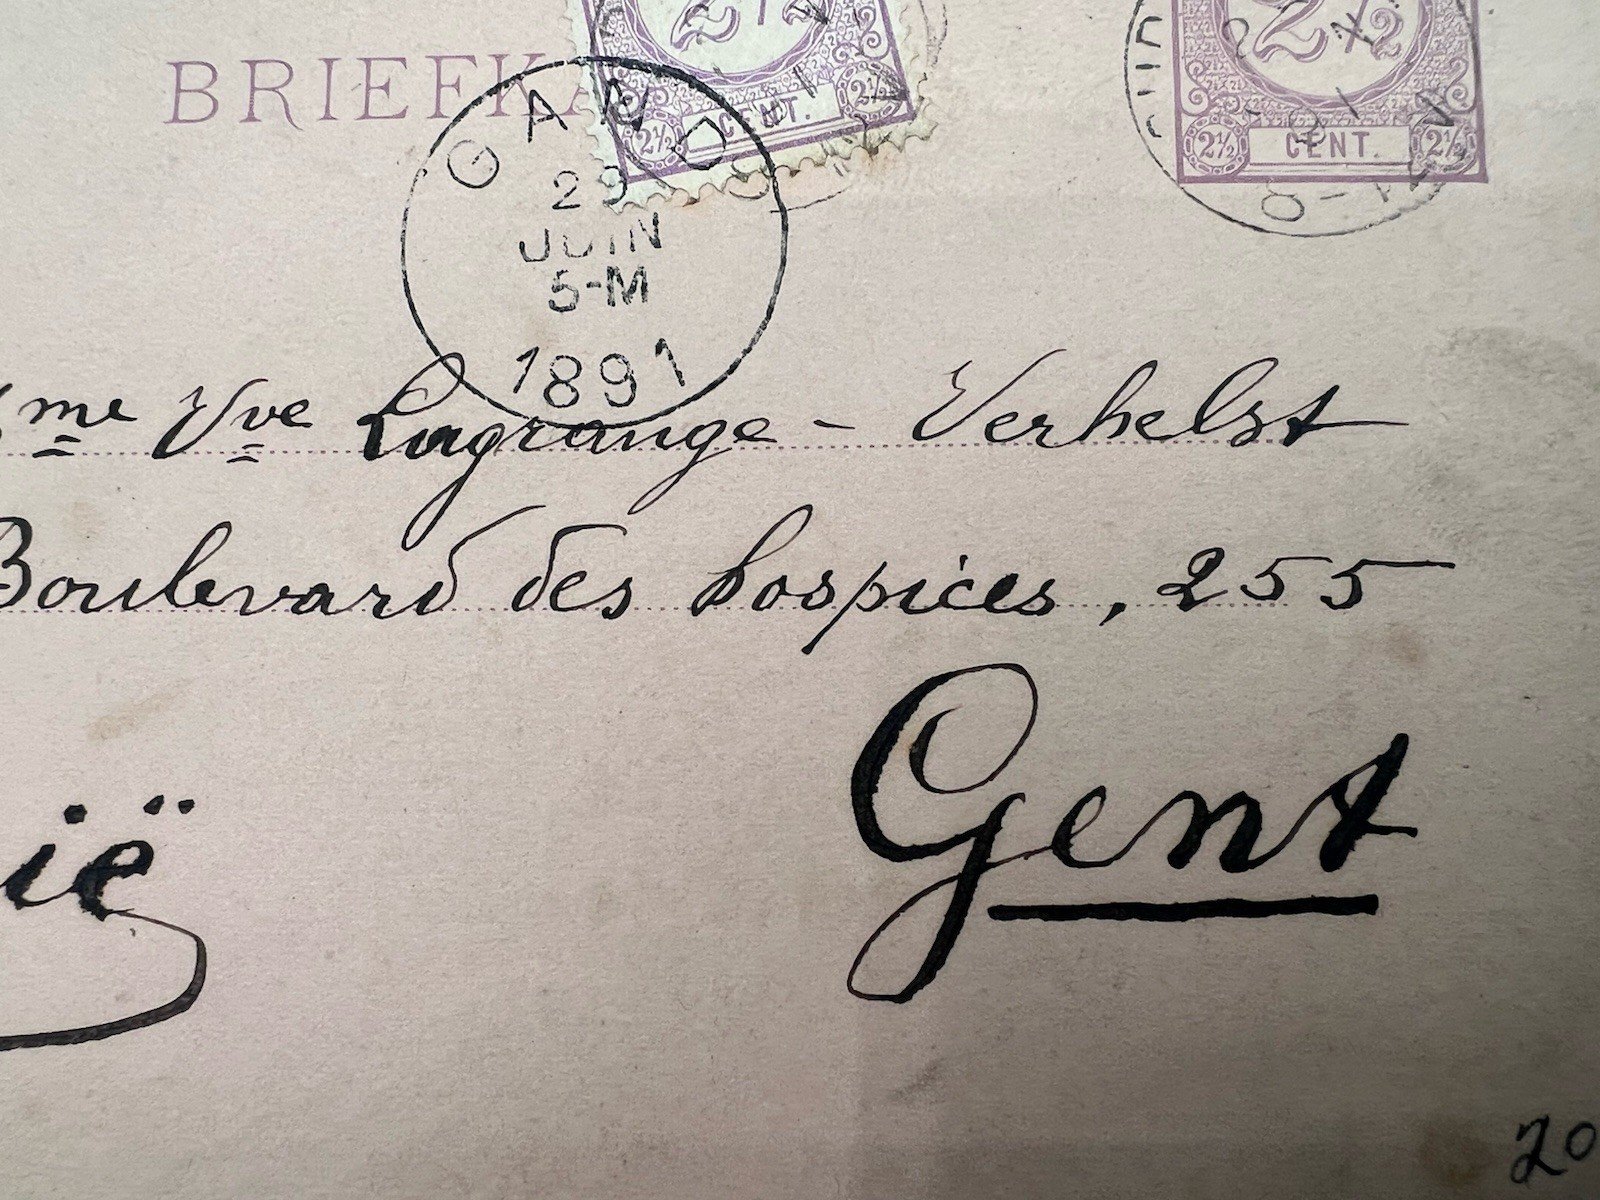 BRIEFKA
2½
CENT.
2½ 2½
2½
CENT.
2½ 2½
GAND
29
JUIN
5-M
1891
me Vve Lagrange - Verhelst
Boulevard des hospices, 255
Gent
ië
20